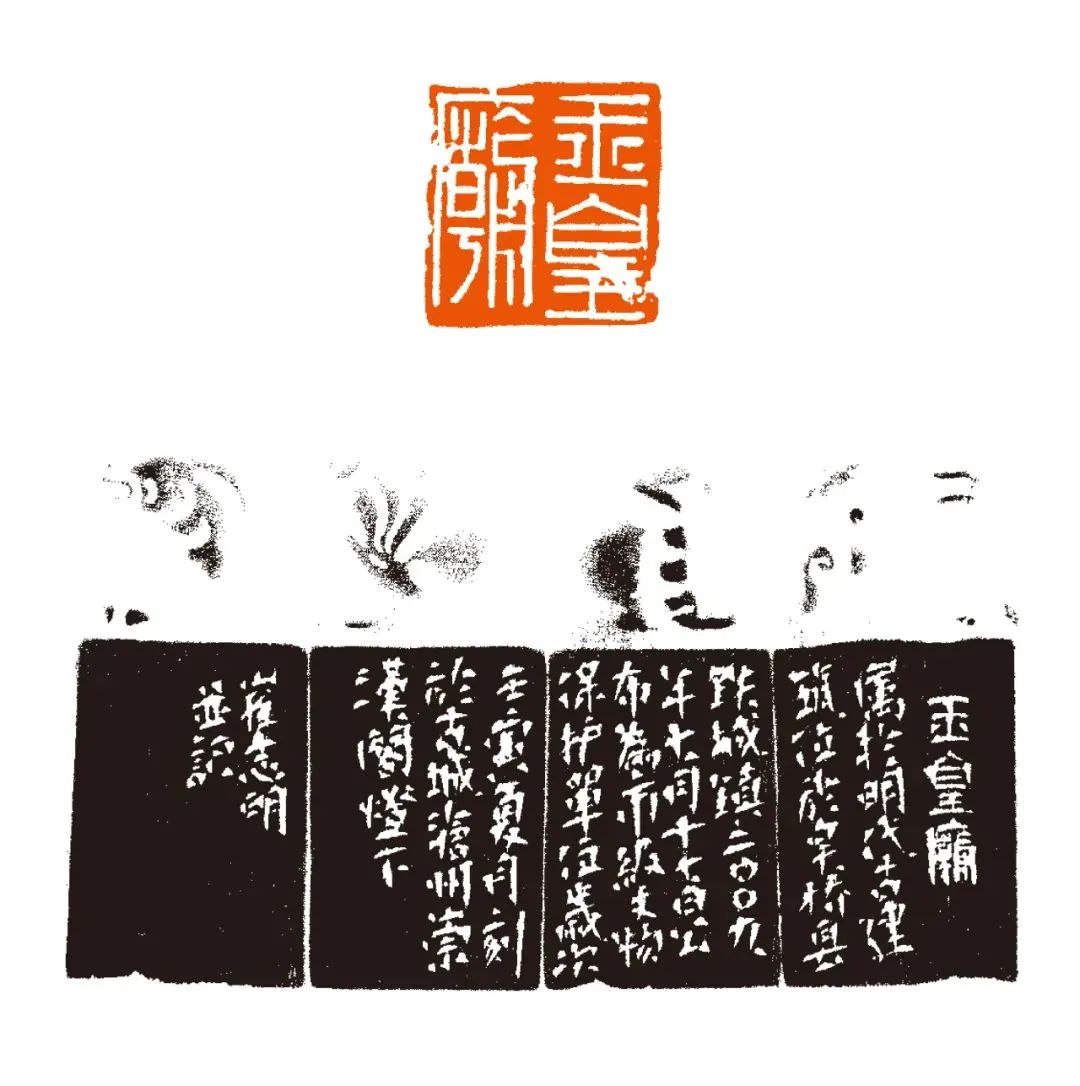 玉皇
廟
玉皇廟
属於明代古建
筑位於吴桥县
鉄城鎮二〇〇九
年七月十七日公
布為市級文物
保护單位歲次
壬寅夏月刻
於古城滄州崇
漢閣燈下
崔志明
並記